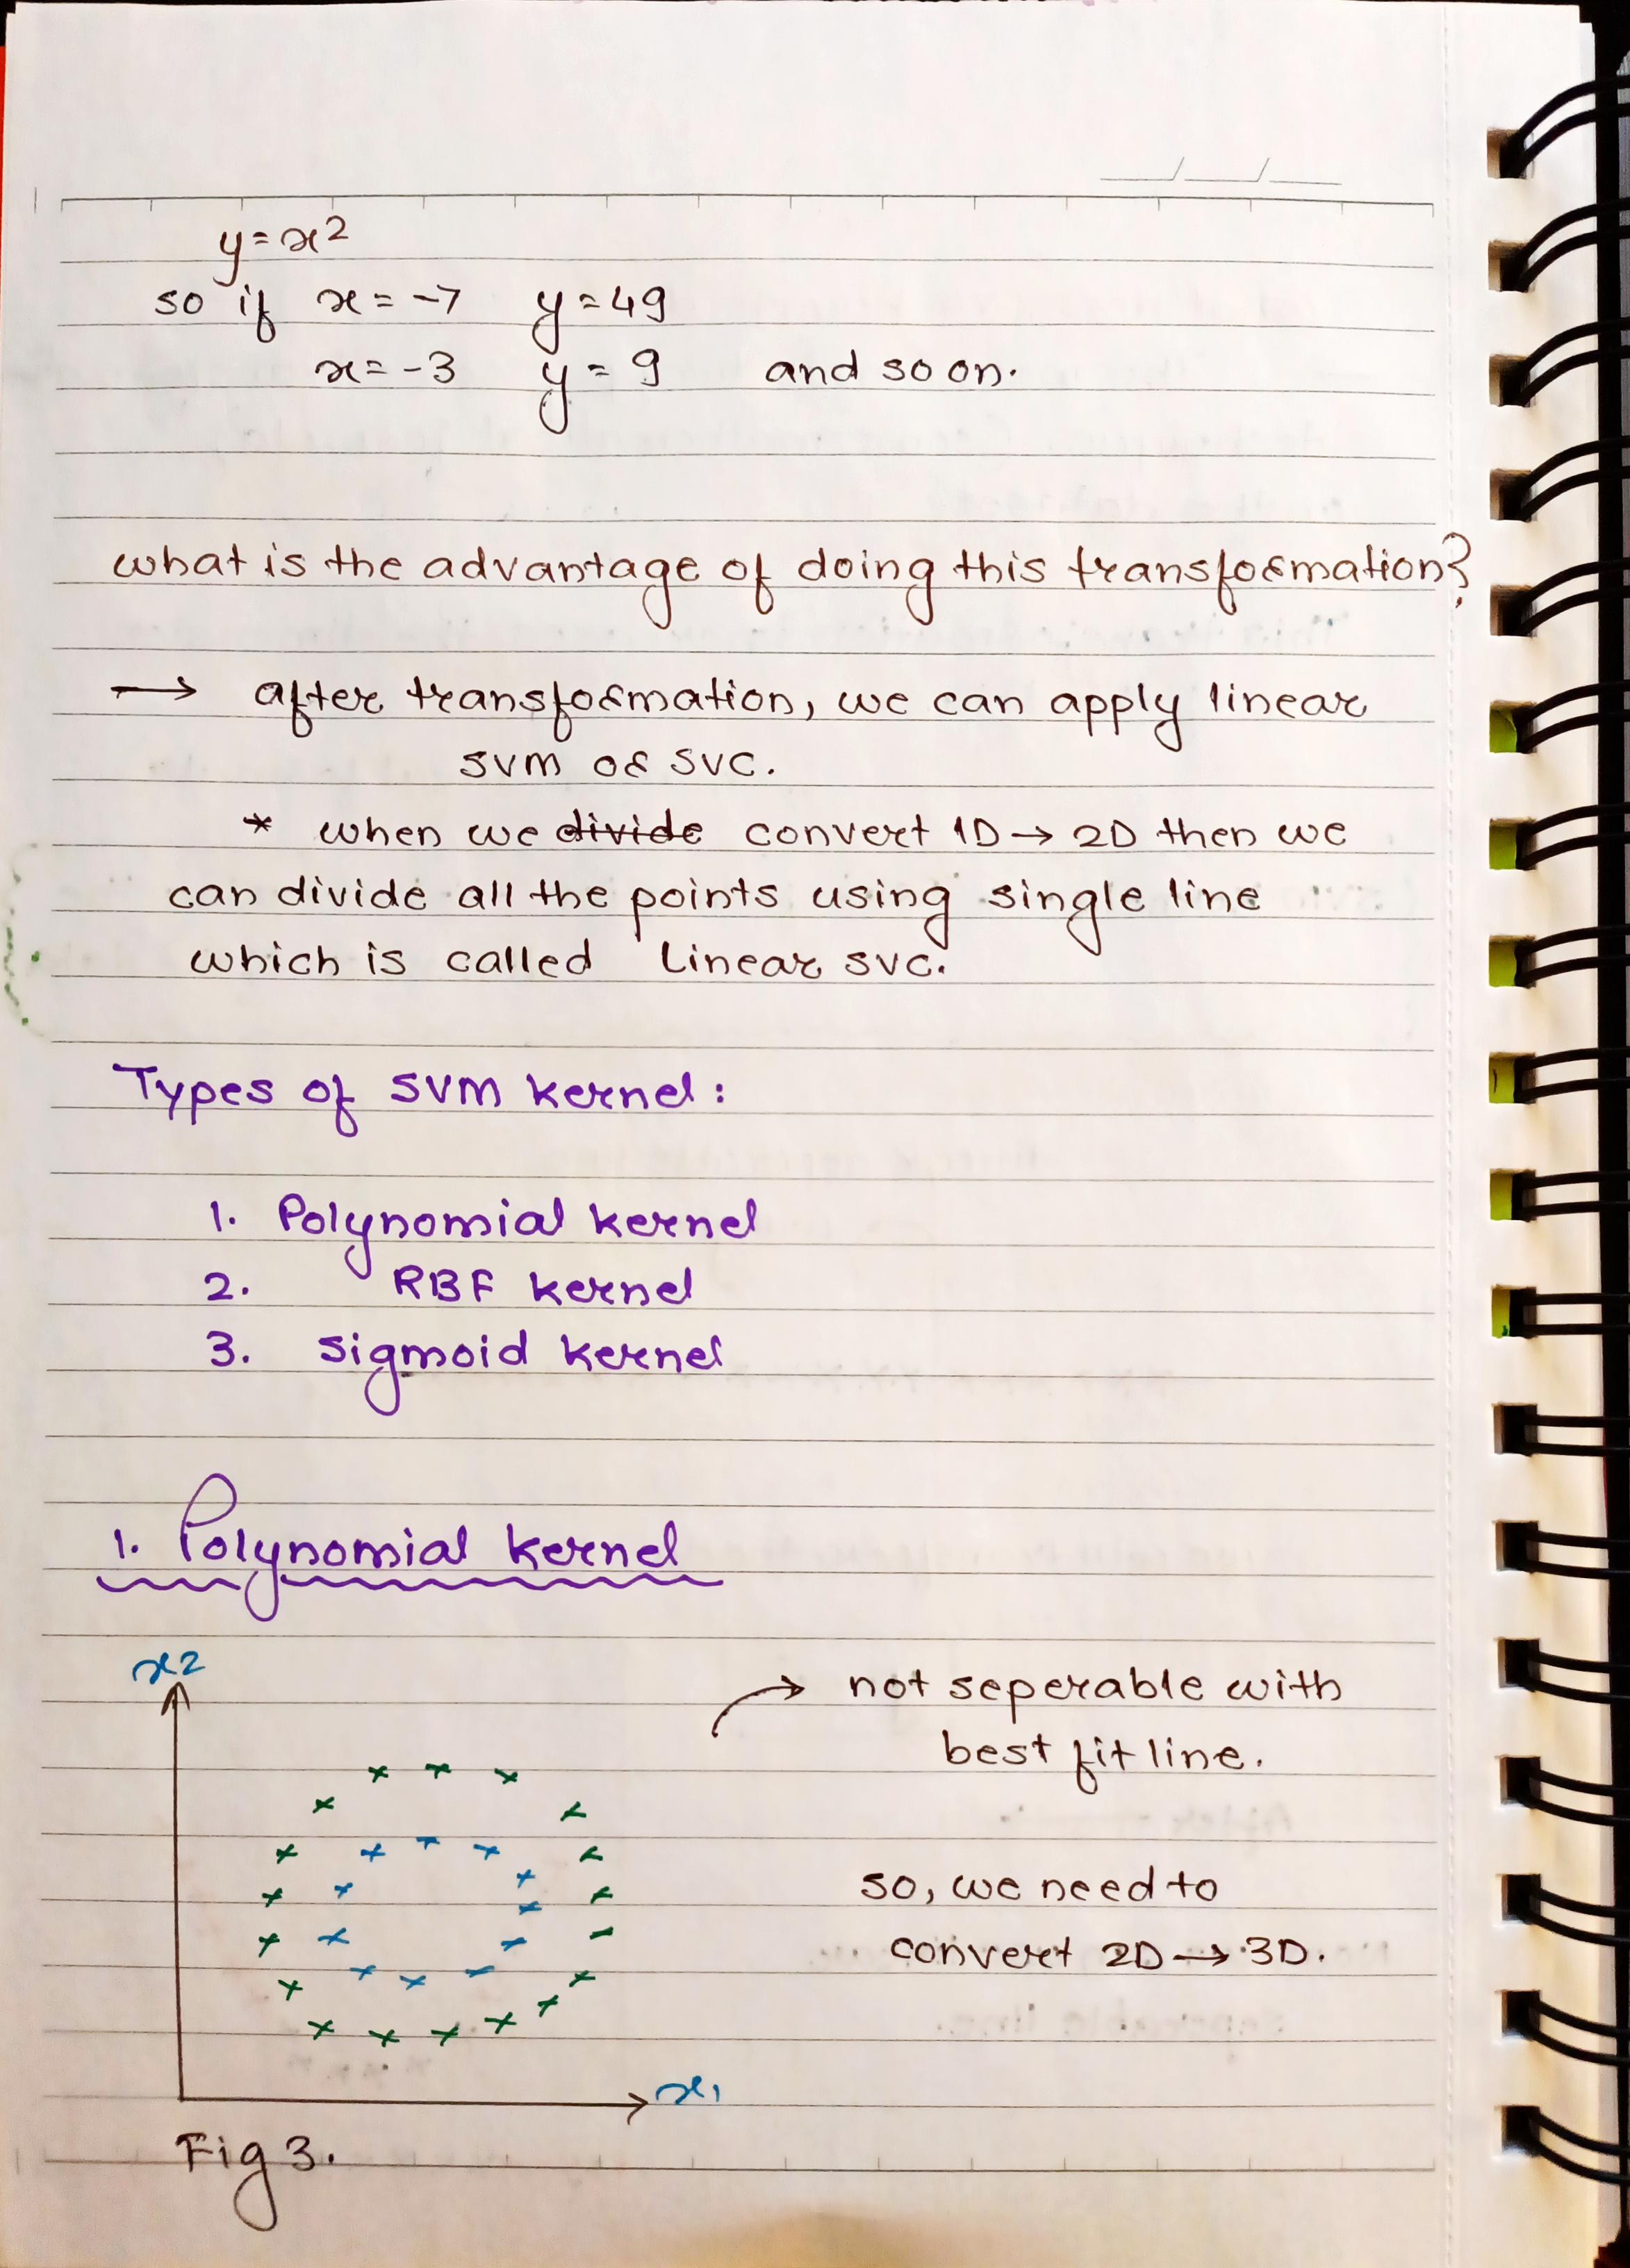 y = x2
so if x = -7 y = 49
x = -3 y = 9 and so on.
what is the advantage of doing this transformation?
→ after transformation, we can apply linear
svm or svc.
* when we divide convert 1D → 2D then we
can divide all the points using single line
which is called Linear svc.
Types of SVM kernel:
1. Polynomial kernel
2. RBF kernel
3. sigmoid kernel
1. Polynomial kernel
x2
→ not seperable with
best fit line.
so, we need to
convert 2D → 3D.
x1
Fig 3.